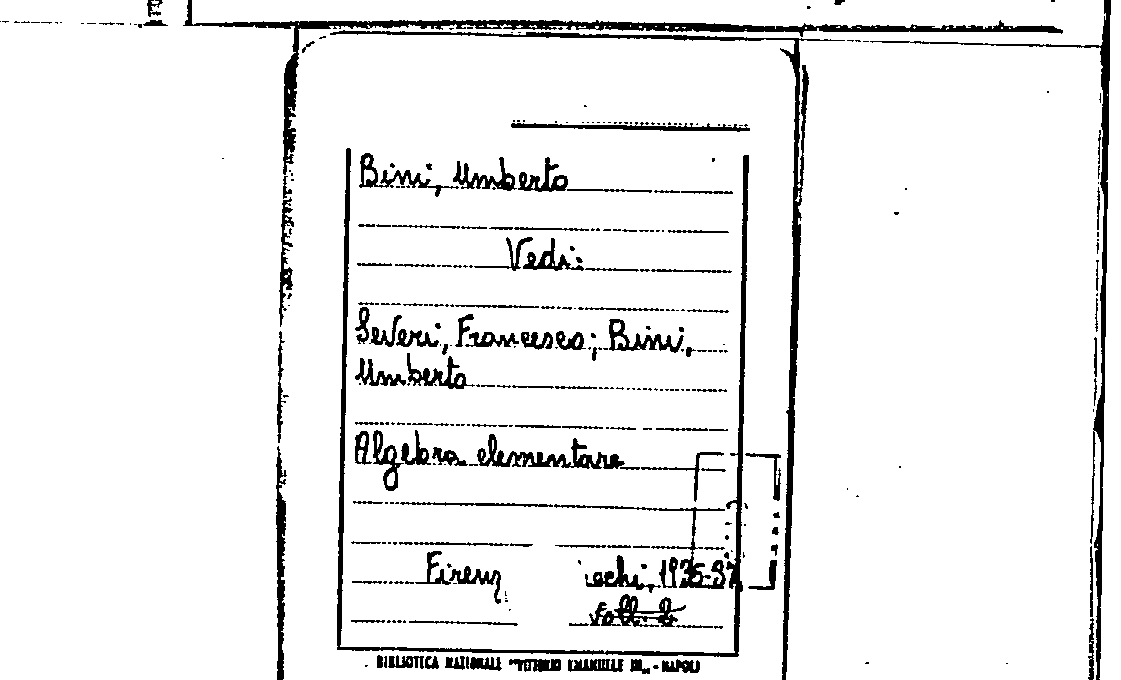 Bini, Umberto
Vedi:
Severi, Francesco; Bini,
Umberto
Algebra elementare
Firenz echi, 1935-37
voll. 2
BIBLIOTECA NAZIONALE "VITTORIO EMANUELE III" - NAPOLI